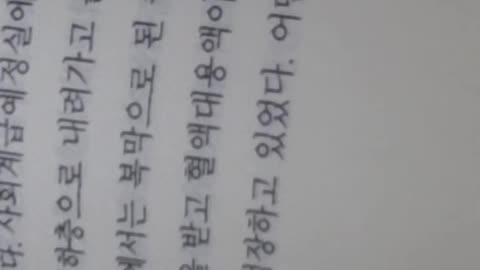 다. 사회계급예정실에
하층으로 내려가고
에서는 복막으로 된
을 받고 혈액대용액이
하고 있었다.